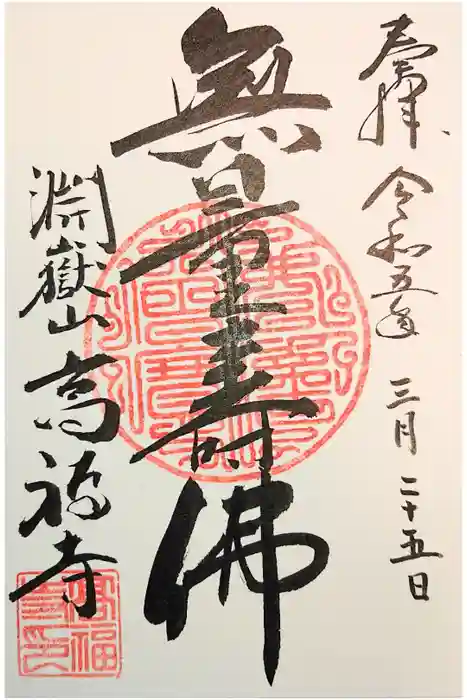 奉拝 令和五年 三月二十五日
無量寿佛
淵嶽山高福寺
高福寺印